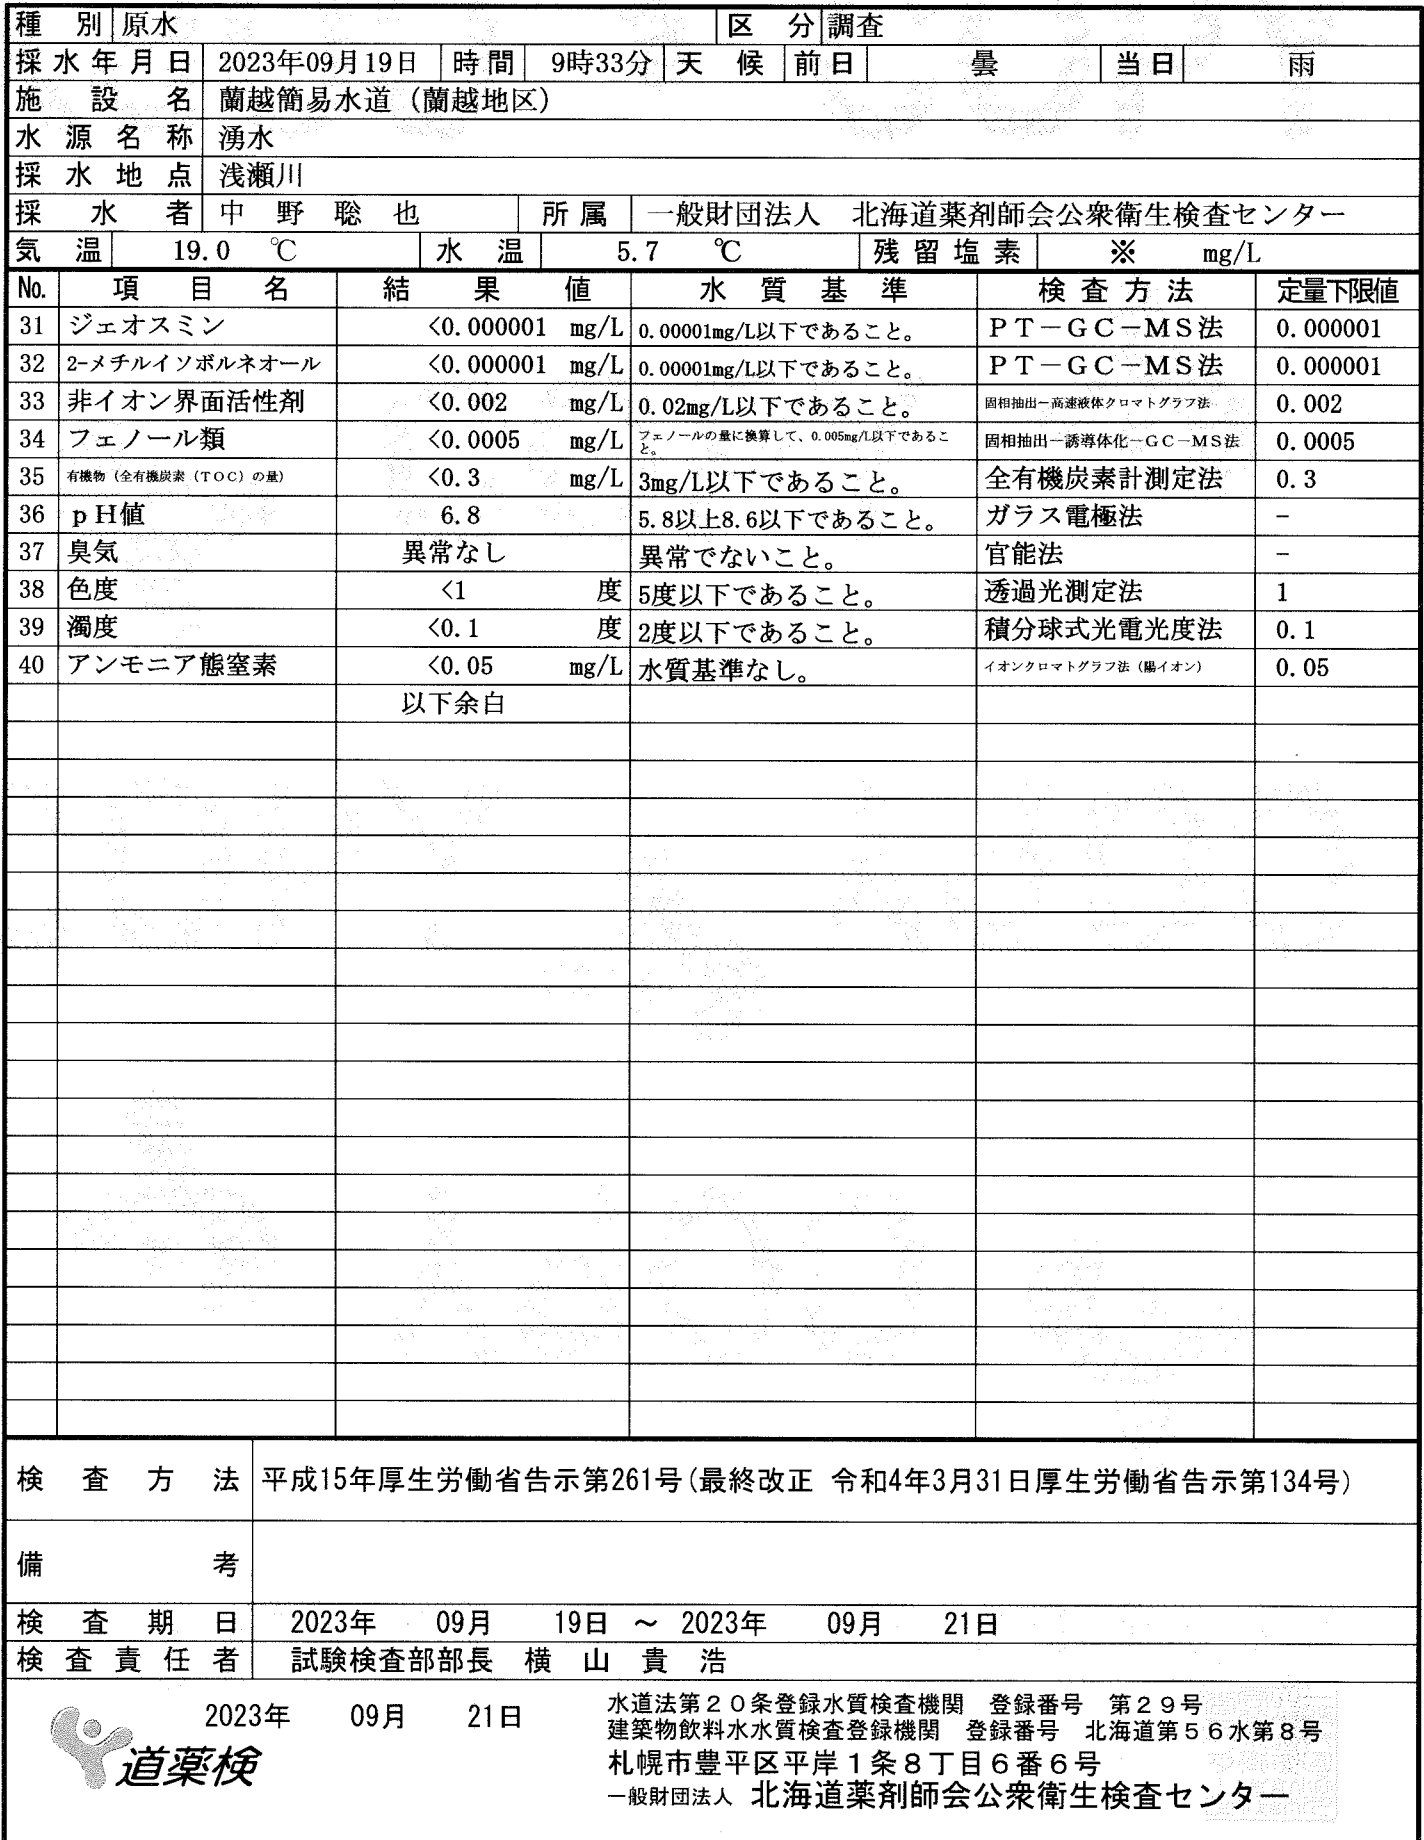 種 別 原水 区 分 調査
採水年月日 2023年09月19日 時間 9時33分 天 候 前日 曇 当日 雨
施 設 名 蘭越簡易水道（蘭越地区）
水 源 名 称 湧水
採 水 地 点 浅瀬川
採 水 者 中 野 聡 也 所属 一般財団法人 北海道薬剤師会公衆衛生検査センター
気 温 19.0 ℃ 水 温 5.7 ℃ 残留塩素 ※ mg/L
No. 項 目 名 結 果 値 水 質 基 準 検査方法 定量下限値
31 ジェオスミン <0.000001 mg/L 0.00001mg/L以下であること。 ＰＴ－ＧＣ－ＭＳ法 0.000001
32 2-メチルイソボルネオール <0.000001 mg/L 0.00001mg/L以下であること。 ＰＴ－ＧＣ－ＭＳ法 0.000001
33 非イオン界面活性剤 <0.002 mg/L 0.02mg/L以下であること。 固相抽出－高速液体クロマトグラフ法 0.002
34 フェノール類 <0.0005 mg/L フェノールの量に換算して、0.005mg/L以下であること。 固相抽出－誘導体化－ＧＣ－ＭＳ法 0.0005
35 有機物（全有機炭素（ＴＯＣ）の量） <0.3 mg/L 3mg/L以下であること。 全有機炭素計測定法 0.3
36 ｐＨ値 6.8 5.8以上8.6以下であること。 ガラス電極法 －
37 臭気 異常なし 異常でないこと。 官能法 －
38 色度 <1 度 5度以下であること。 透過光測定法 1
39 濁度 <0.1 度 2度以下であること。 積分球式光電光度法 0.1
40 アンモニア態窒素 <0.05 mg/L 水質基準なし。 イオンクロマトグラフ法（陽イオン） 0.05
以下余白
検 査 方 法 平成15年厚生労働省告示第261号(最終改正 令和4年3月31日厚生労働省告示第134号)
備 考
検 査 期 日 2023年 09月 19日 ～ 2023年 09月 21日
検 査 責 任 者 試験検査部部長 横 山 貴 浩
2023年 09月 21日
道薬検
水道法第２０条登録水質検査機関 登録番号 第２９号
建築物飲料水水質検査登録機関 登録番号 北海道第５６水第８号
札幌市豊平区平岸１条８丁目６番６号
一般財団法人 北海道薬剤師会公衆衛生検査センター